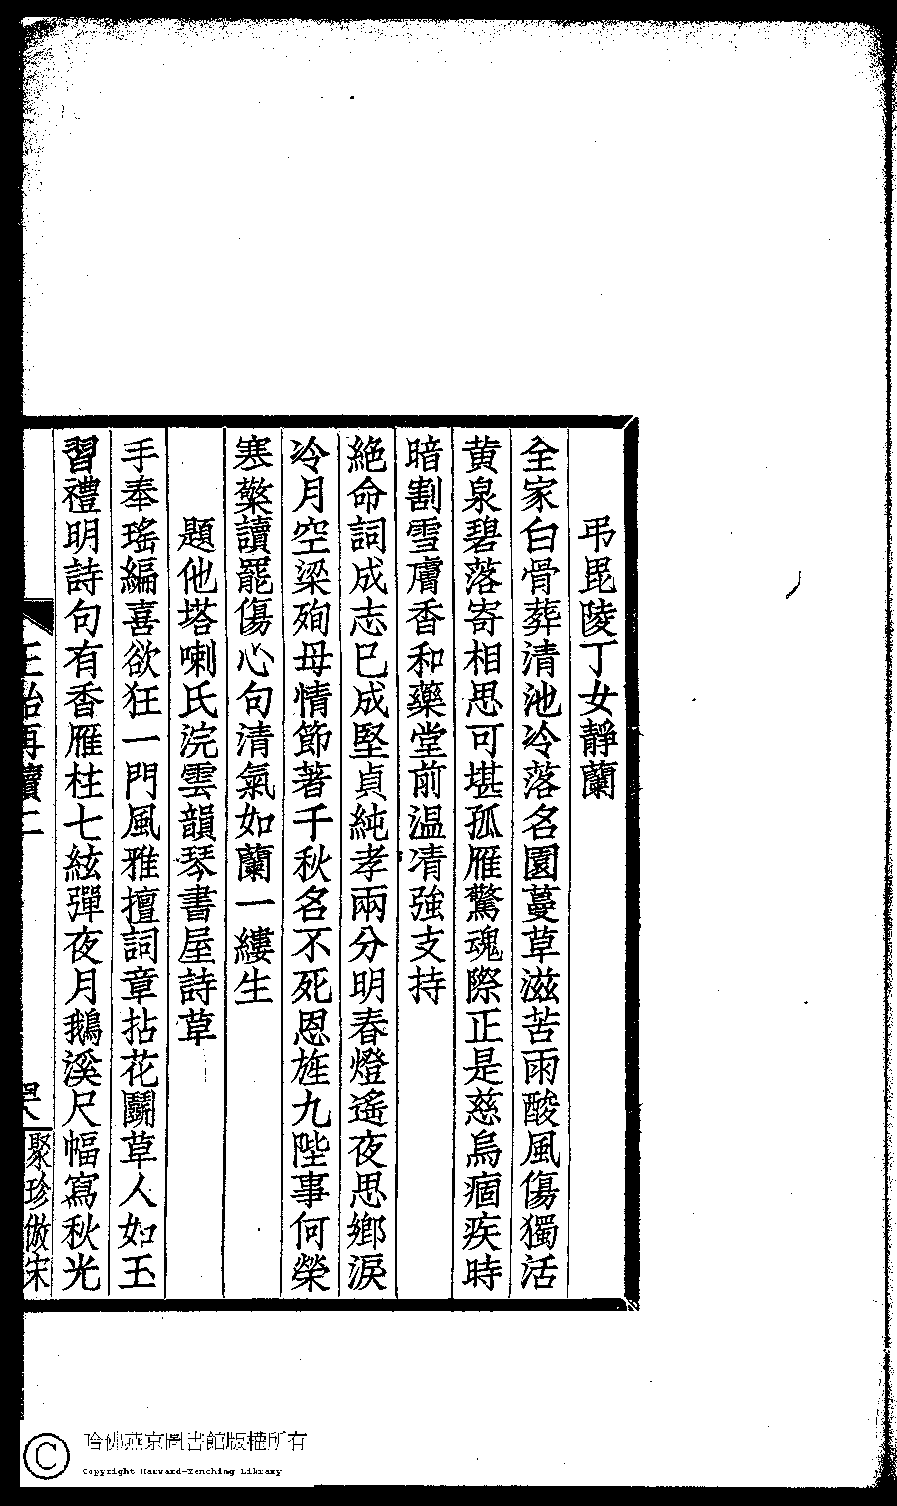 弔毘陵丁女靜蘭
全家白骨葬清池冷落名園蔓草滋苦雨酸風傷獨活
黃泉碧落寄相思可堪孤雁驚魂際正是慈烏痼疾時
暗割雪膚香和藥堂前温凊強支持
絶命詞成志已成堅貞純孝兩分明春燈遙夜思鄉淚
冷月空梁殉母情節著千秋名不死恩旌九陛事何榮
寒檠讀罷傷心句清氣如蘭一縷生
題他塔喇氏浣雲韻琴書屋詩草
手奉瑤編喜欲狂一門風雅擅詞章拈花鬭草人如玉
習禮明詩句有香雁柱七絃彈夜月鵝溪尺幅寫秋光
再續二
聚珍倣宋
哈佛燕京圖書館版權所有
Copyright Harvard-Yenching Library